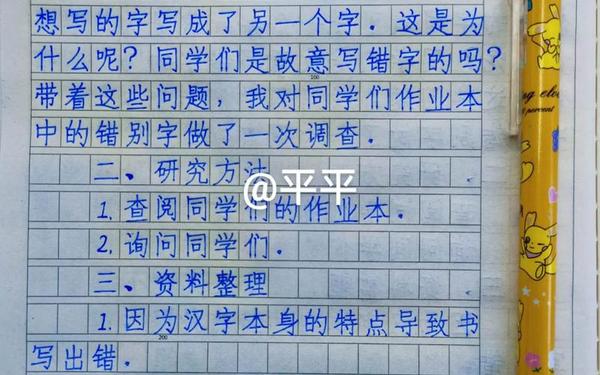 想写的字写成了另一个字．这是为
什么呢？同学们是故意写错字的吗？
100
带着这些问题，我对同学们作业本
中的错别字做了一次调查．
二、研究方法
@平平
1.查阅同学们的作业本．
2.询问同学们．
三、资料整理
1.因为汉字本身的特点导致书
200
写出错．
percent